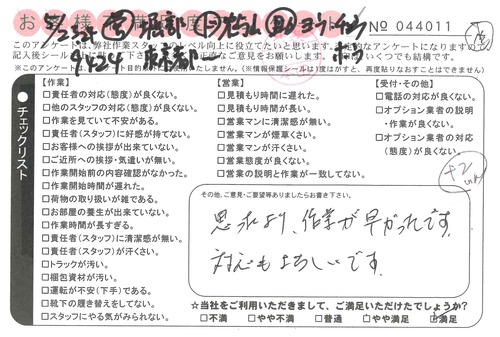 お 様 度 ト № 044011
このアンケートは、弊社作業スタッフのレベル向上に役立てたいと思います。
※このアンケートは、
(※情報保護シールは1度はがすと、再度貼りなおすことはできません)
チェックリスト
【作業】
□責任者の対応(態度)が良くない。
□他のスタッフの対応(態度)が良くない。
□作業を見ていて不安がある。
□責任者(スタッフ)に好感が持てない。
□お客様への挨拶が出来ていない。
□ご近所への挨拶・気遣いが無い。
□作業開始前の内容確認がなかった。
□作業開始時間が遅れた。
□荷物の取り扱いが雑である。
□お部屋の養生が出来ていない。
□作業時間が長すぎる。
□責任者(スタッフ)に清潔感が無い。
□責任者(スタッフ)が汗くさい。
□トラックが汚い。
□梱包資材が汚い。
□運転が不安(下手)である。
□靴下の履き替えをしてない。
□スタッフにやる気がみられない。
【営業】
□見積もり時間に遅れた。
□見積もり時間が長い。
□営業マンに清潔感が無い。
□営業マンが煙草くさい。
□営業マンが汗くさい。
□営業態度が良くない。
□営業の説明と作業が一致してない。
【受付・その他】
□電話の対応が良くない。
□オプション業者の説明
・作業が良くない。
□オプション業者の対応
(態度)が良くない。
その他、ご意見・ご要望等ありましたらお書き下さい。
思ったより、作業が早かったです。
対応もよろしいです。
☆当社をご利用いただきまして、ご満足いただけたでしょうか?
□不満 □やや不満 □普通 □やや満足 □満足